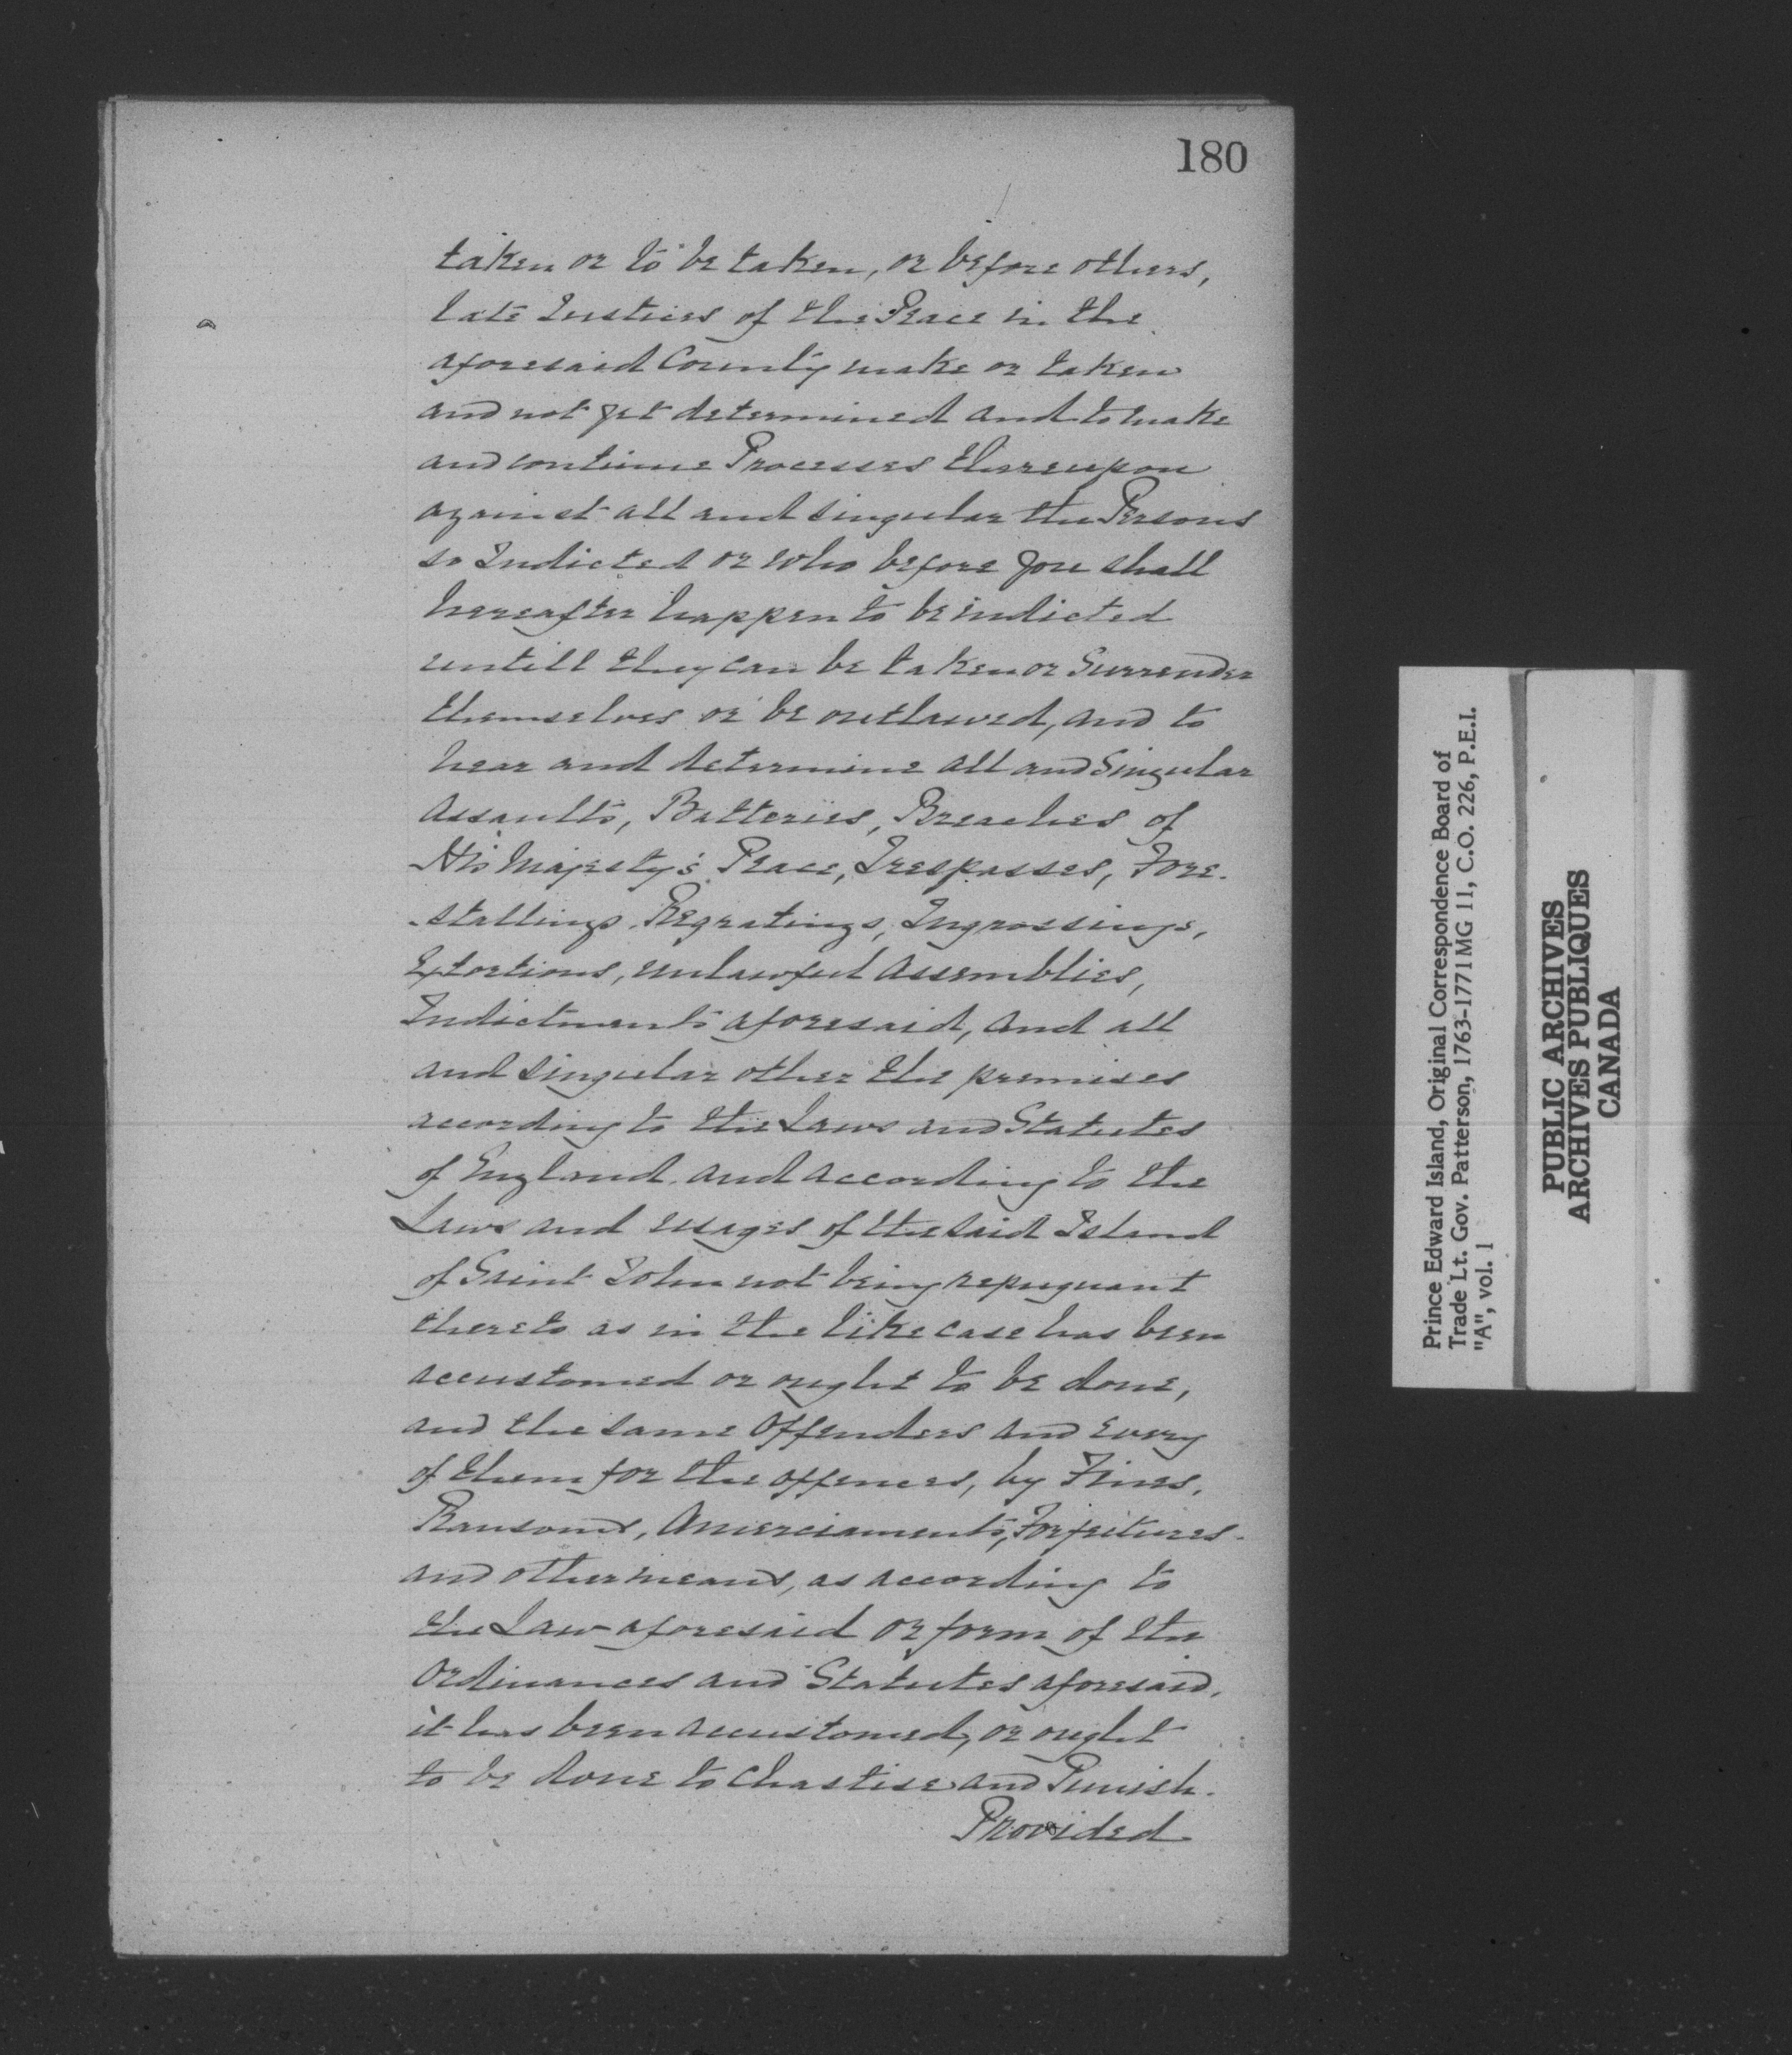 180
taken or to be taken, or before others,
late Justices of the Peace in the
aforesaid County make or taken
and not yet determined and to make
and continue Processes thereupon
against all and singular the Persons
so Indicted or who before you shall
hereafter happen to be indicted
untill they can be taken or Surrender
themselves or be outlawed, and to
hear and determine all and Singular
Assaults, Batteries, Breaches of
His Majesty's Peace, Trespasses, Fore-
-stallings, Regratings, Ingrossings,
Extortions, unlawful Assemblies,
Indictments aforesaid, and all
and singular other the premises
according to the Laws and Statutes
of England, and according to the
Laws and usages of the said Island
of Saint John not being repugnant
thereto as in the like case has been
accustomed or ought to be done,
and the same Offenders and every
of them for the offences, by Fines,
Ransoms, Amerciaments, Forfeitures
and other means, as according to
the Law aforesaid or form of the
Ordinances and Statutes aforesaid,
it has been accustomed, or ought
to be done to Chastise and Punish.
Provided
Prince Edward Island, Original Correspondence Board of
Trade Lt. Gov. Patterson, 1763-1771 MG 11, C.O. 226, P.E.I.
"A", vol. 1
PUBLIC ARCHIVES
ARCHIVES PUBLIQUES
CANADA